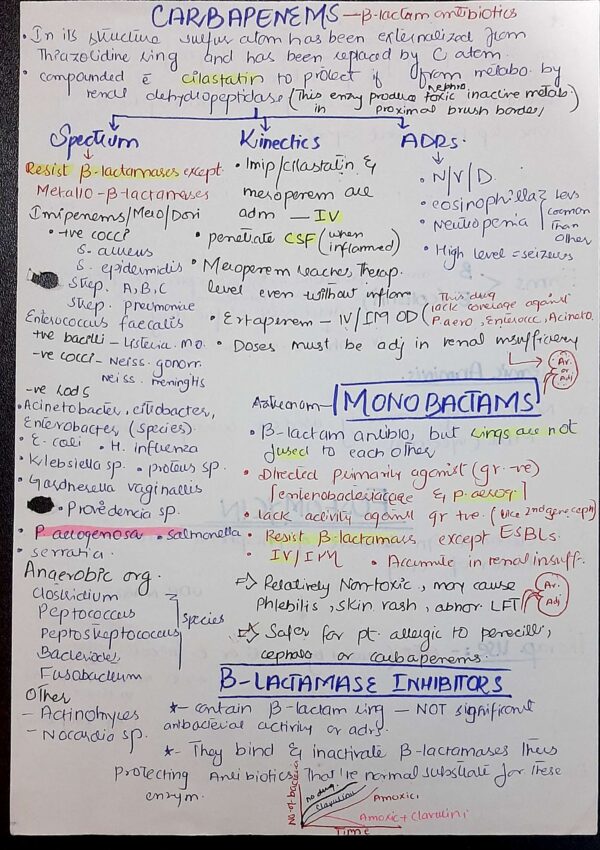 CARBAPENEMS — β-lactam antibiotics
• In its structure sulfur atom has been externalized from
Thiazolidine ring and has been replaced by C atom.
• compounded c̄ cilastatin to protect it from metabo. by
renal dehydropeptidase (This enzy produce nephro toxic inactive metab.
in proximal brush border)
Spectrum
Resist β-lactamases except
Metallo-β-lactamases
Imipenems/Mero/Dori
• +ve cocci
S. aureus
S. epidermidis
Strep. A,B,C
Strep. pneumoniae
Enterococcus faecalis
+ve bacilli – Listeria. mo.
-ve cocci – Neiss. gonorr.
Neiss. meningitis
-ve rods
• Acinetobacter, citrobacter,
Enterobacter (species)
• E. coli • H. influenza
• Klebsiella sp. • proteus sp.
• Gardnerella vaginallis
• Providencia sp.
• P. aerogenosa • salmonella
• serratia
Anaerobic org.
Clostridium
Peptococcus
Peptostreptococcus
Bacteriodes
Fusobacterium
species
Other
– Actinomyces
– Nocardia sp.
Kinectics
• Imip/cilastatin &
meropenem are
adm — IV
• penetrate CSF (when
inflammed)
• Meropenem reaches Therap.
level even without inflam.
• Ertapenem – IV/IM OD (This drug
lack coverage against
P. aero, Enterocc, Acineto.
• Doses must be adj in renal insufficiency
Av.
or
Adj
ADRs
• N/V/D.
• eosinophilia
• Neutropenia
less
common
Than
other
• High level = seizures
Aztreonam — MONOBACTAMS
• β-lactam antibio, but rings are not
fused to each other
• Directed primarily against (gr. -ve)
[enterobacteriaceae & p. aerog.]
• lack activity against gr +ve. (like 2nd gene ceph)
• Resist β-lactamases except ESBLs.
• IV/IM • Accumulate in renal insuff.
⇒ Relatively Non-toxic, may cause
Phlebitis, skin rash, abnor. LFT
Av.
Adj
⇒ Safer for pt. allergic to penecill,
cephalo or carbapenems.
β-LACTAMASE INHIBITORS
*- contain β-lactam ring — NOT significant
antibacterial activity or adrs.
*- They bind & inactivate β-lactamases Thus
protecting Antibiotics That're normal substrate for these
enzym.
No. of bacteria
no drug
Clavulini
Amoxici
Amoxic + Clavulini
Time